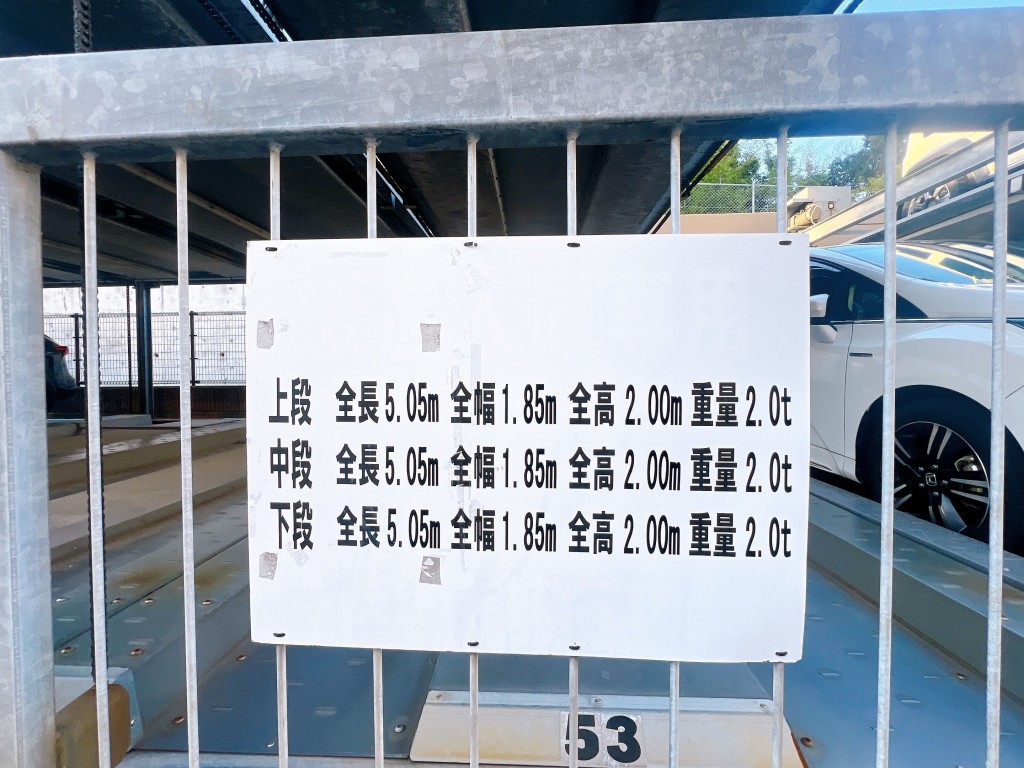 上段 全長5.05m 全幅1.85m 全高2.00m 重量2.0t
中段 全長5.05m 全幅1.85m 全高2.00m 重量2.0t
下段 全長5.05m 全幅1.85m 全高2.00m 重量2.0t
53